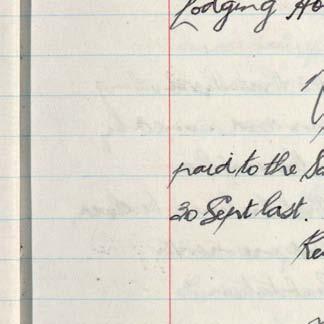 Lodging Ho
paid to the Sa
30 Sept last.
Re